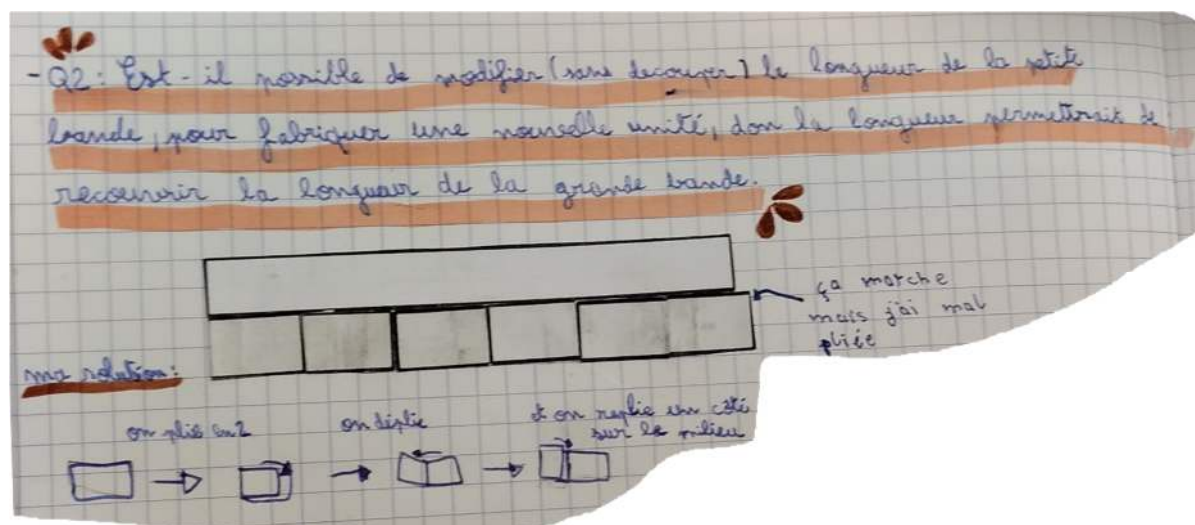 - Q2 : Est - il possible de modifier (sans decouper) le longueur de la petite
bande, pour fabriquer une nouvelle unité, don la longueur permettrait de
recouvrir la longueur de la grande bande.
ça marche
mais j'ai mal
pliée
ma solution :
on plie en 2
on déplie
et on replie un côté
sur le milieu